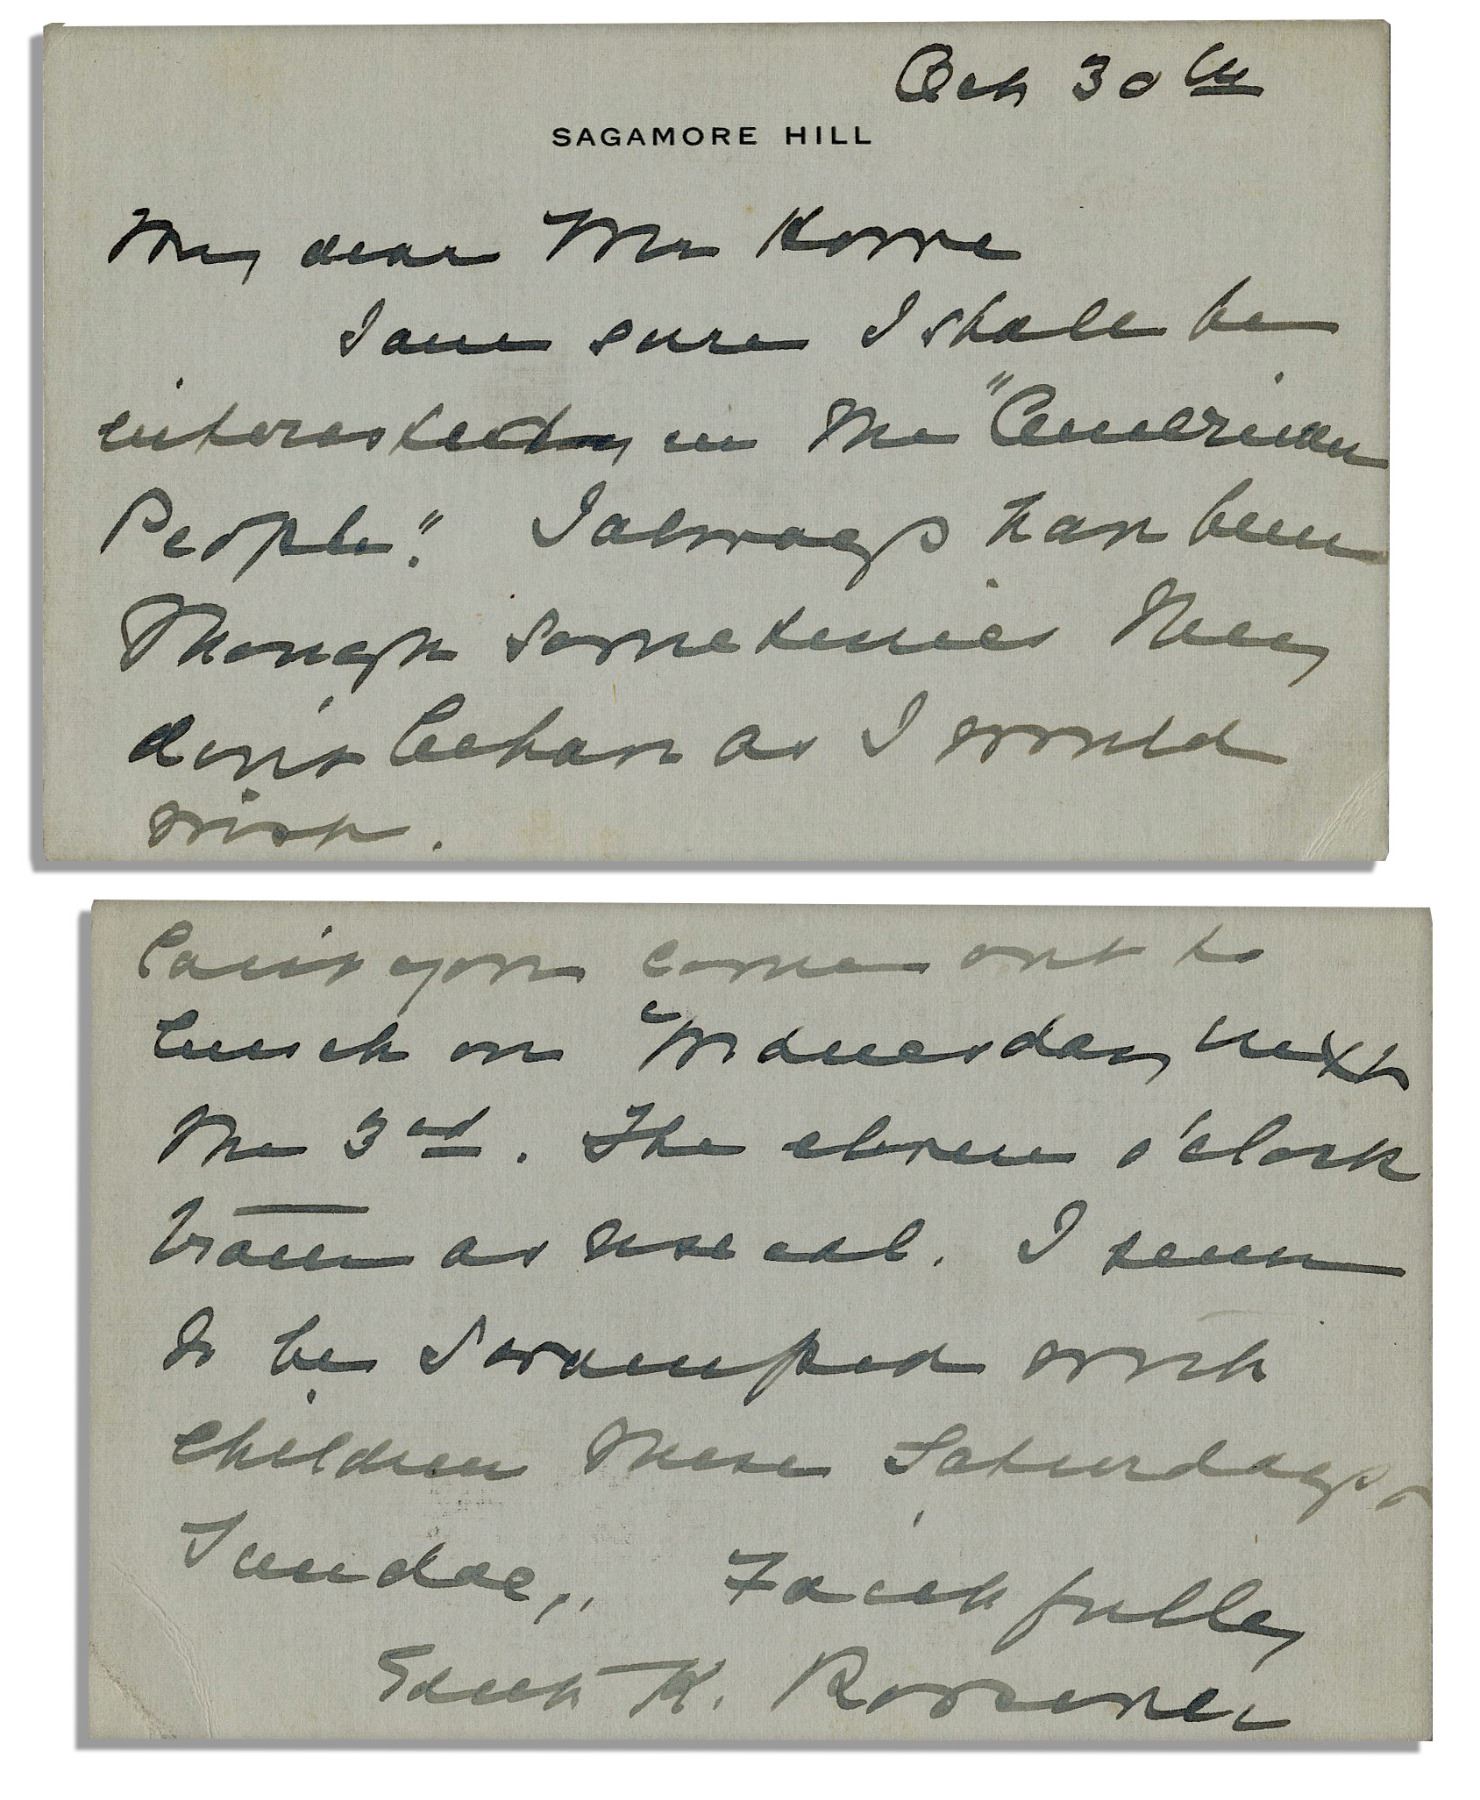 Oct 30th
SAGAMORE HILL
My dear Mr Howe
I am sure I shall be
interested in the "American
People". I always have been
though sometimes they
don't behave as I would
wish.
Can't you come out to
lunch on Wednesday next
the 3rd. The eleven o'clock
train as usual. I seem
to be swamped with
children these Saturdays &
Sundays. Faithfully
Edith K. Roosevelt